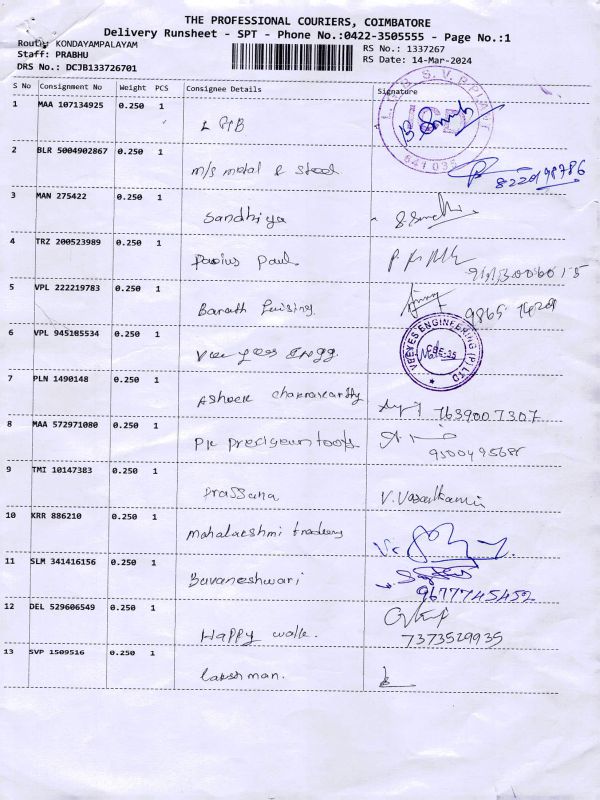 THE PROFESSIONAL COURIERS, COIMBATORE
Delivery Runsheet - SPT - Phone No.:0422-3505555 - Page No.:1
Route: KONDAYAMPALAYAM
RS No.: 1337267
Staff: PRABHU
RS Date: 14-Mar-2024
DRS No.: DCJB133726701
S No Consignment No Weight PCS Consignee Details Signature
1 MAA 107134925 0.250 1
2 BLR 5004902867 0.250 1 m/s metal & steel 8220198786
641 035
3 MAN 275422 0.250 1 Sandhiya
4 TRZ 200523989 0.250 1 Paul
5 VPL 222219783 0.250 1 Barath
6 VPL 945185534 0.250 1 Vee yees Engg. VEEYES ENGINEERING (P) LTD CBE-35
7 PLN 1490148 0.250 1 Ashock chakravarthy 7639007307
8 MAA 572971080 0.250 1 PK precigeum tools
9 TMI 10147383 0.250 1 Prassana
10 KRR 886210 0.250 1 mahalakshmi traders
11 SLM 341416156 0.250 1 Buvaneshwari 9677745452
12 DEL 529606549 0.250 1 Happy walk. 7373529935
13 SVP 1509516 0.250 1 lakshman.